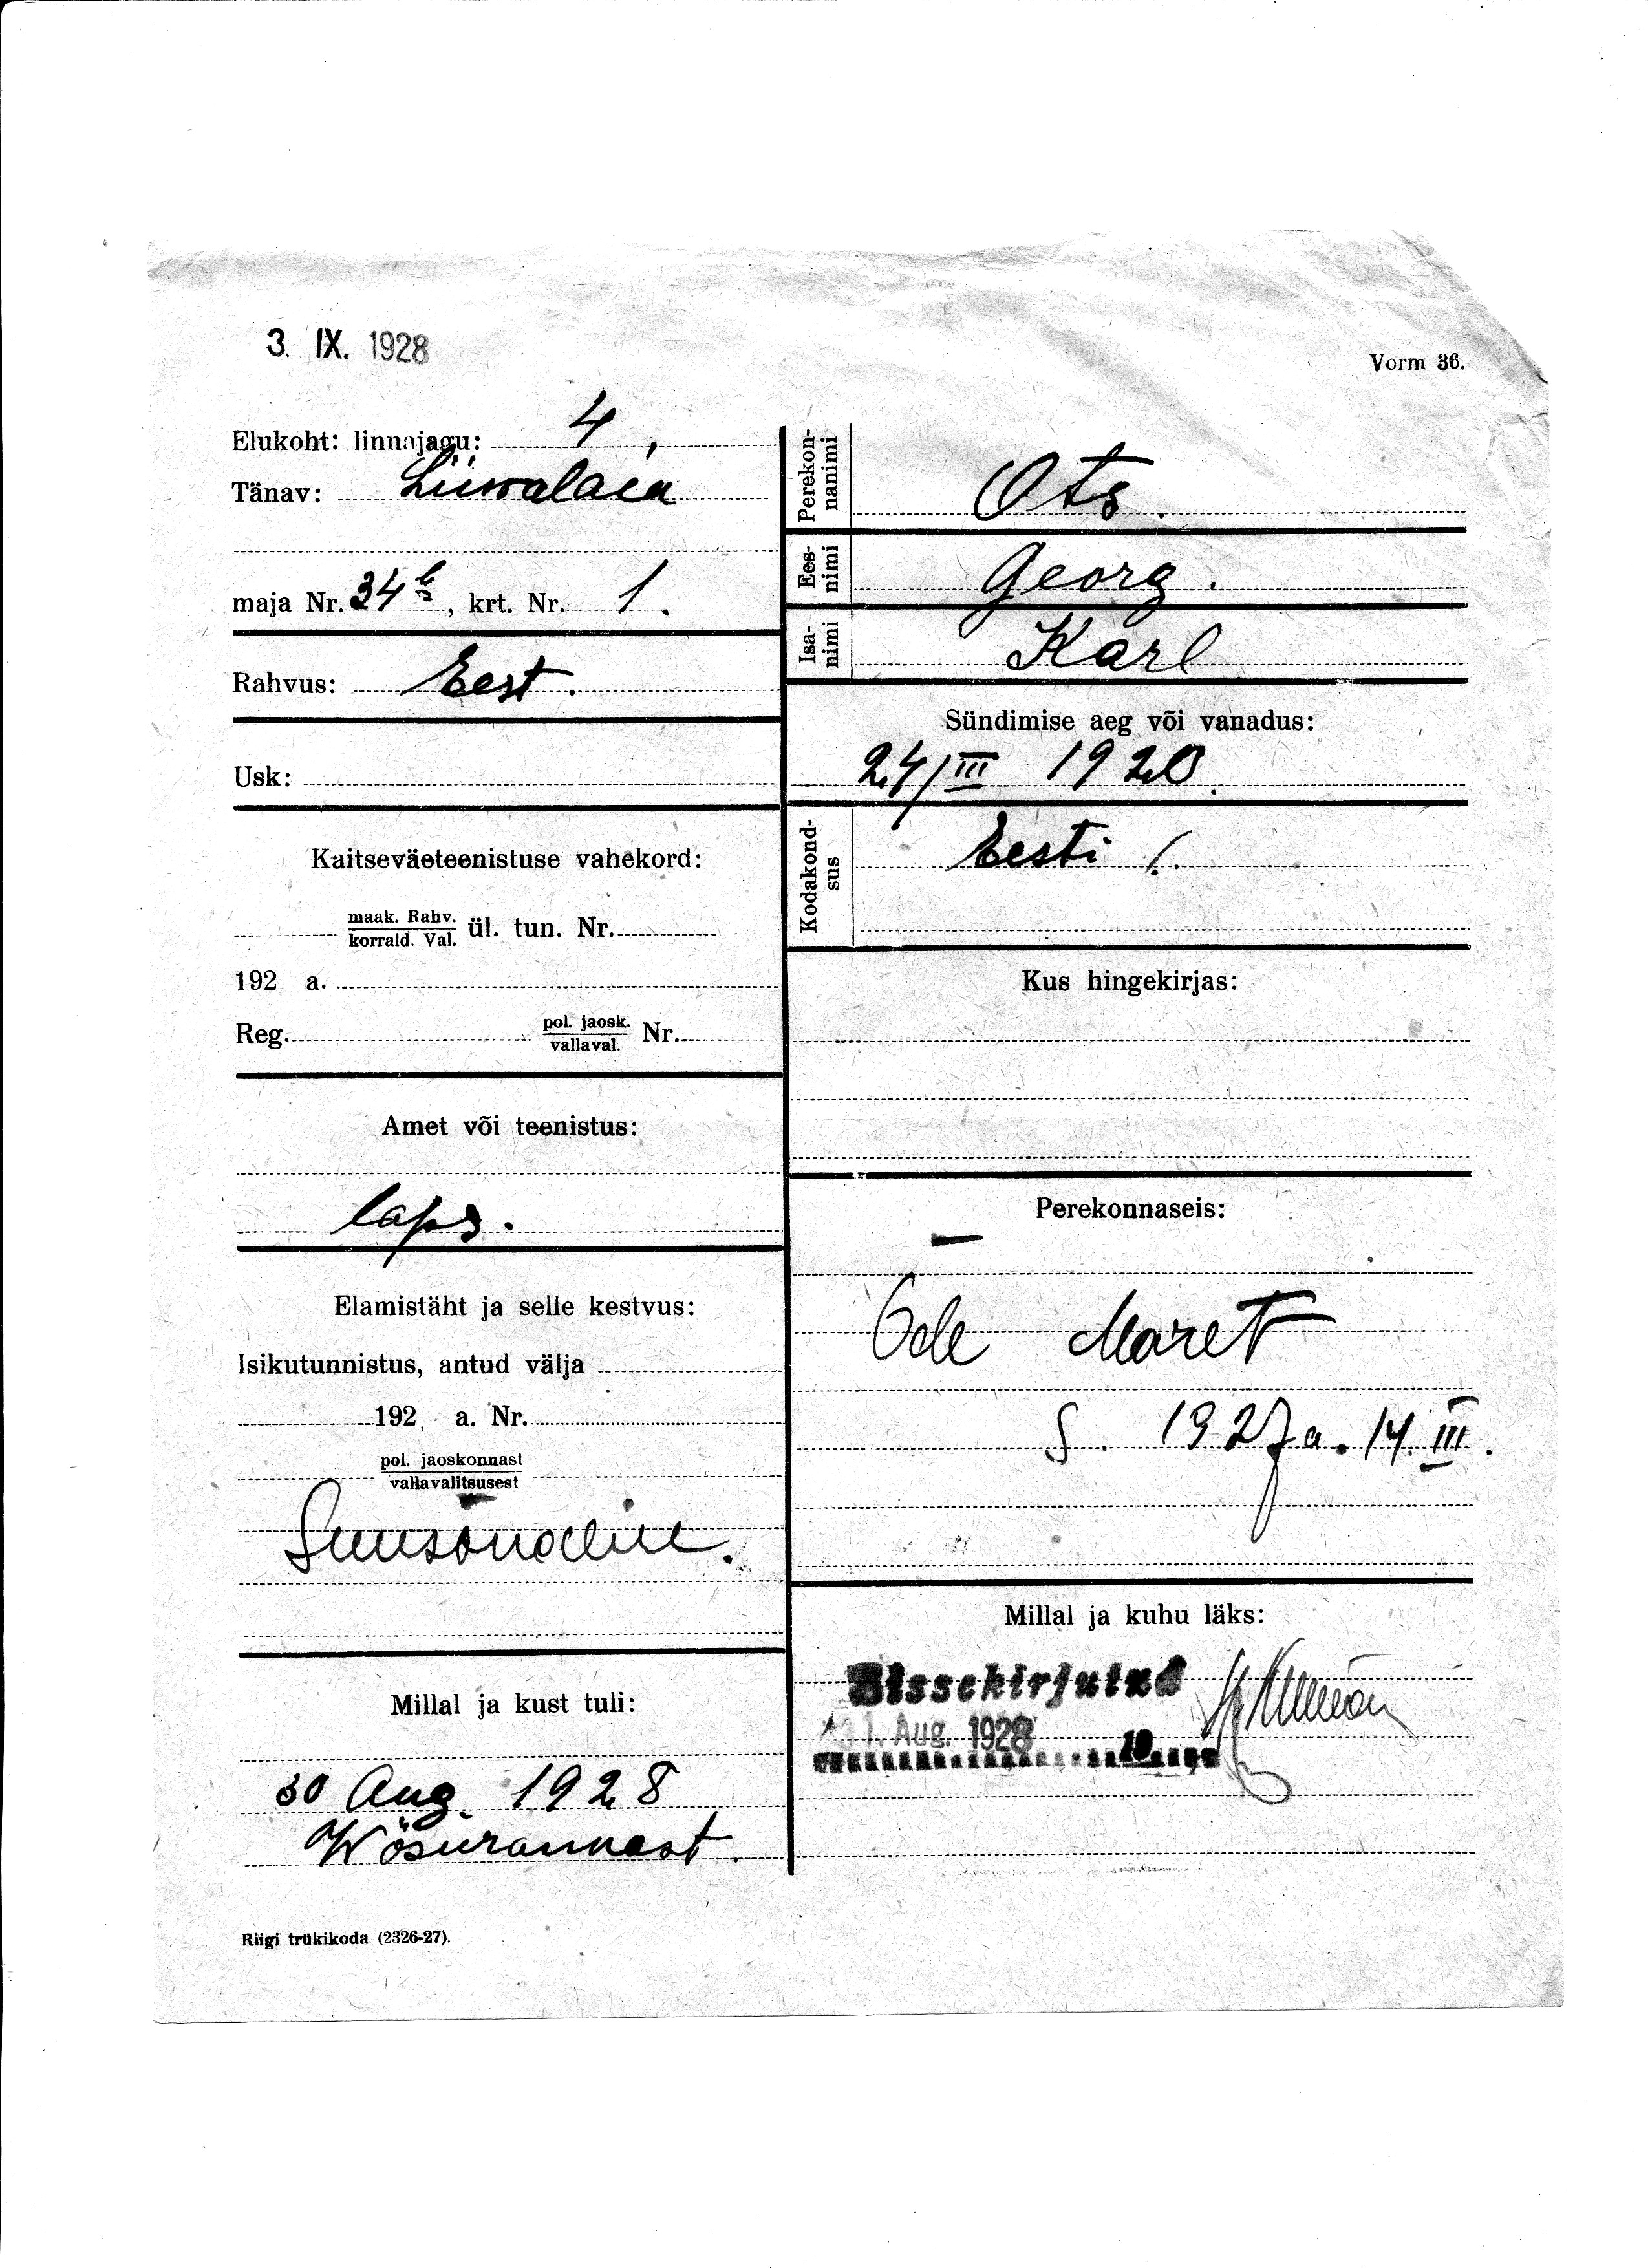 3. IX. 1928
Vorm 36.
Elukoht: linnajagu: 4,
Tänav: Liiwalaia
maja Nr. 34 b, krt. Nr. 1.
Rahvus: Eest.
Usk:
Kaitseväeteenistuse vahekord:
maak. Rahv.
korrald. Val. ül. tun. Nr.
192 a.
Reg. pol. jaosk. Nr.
vallaval.
Amet või teenistus:
laps.
Elamistäht ja selle kestvus:
Isikutunnistus, antud välja
192 a. Nr.
pol. jaoskonnast
vallavalitsusest
Suusõnaline.
Millal ja kust tuli:
30 Aug. 1928
Wösurannast.
Perekon-
nanimi Ots.
Ees-
nimi Georg.
Isa-
nimi Karl
Sündimise aeg või vanadus:
24/III 1920.
Kodakond-
sus Eesti
Kus hingekirjas:
Perekonnaseis:
—
Ode Maret
S. 1927 a. 14. III.
Millal ja kuhu läks:
Sissekirjutud
31. Aug. 1928
19
Riigi trükikoda (2326-27).